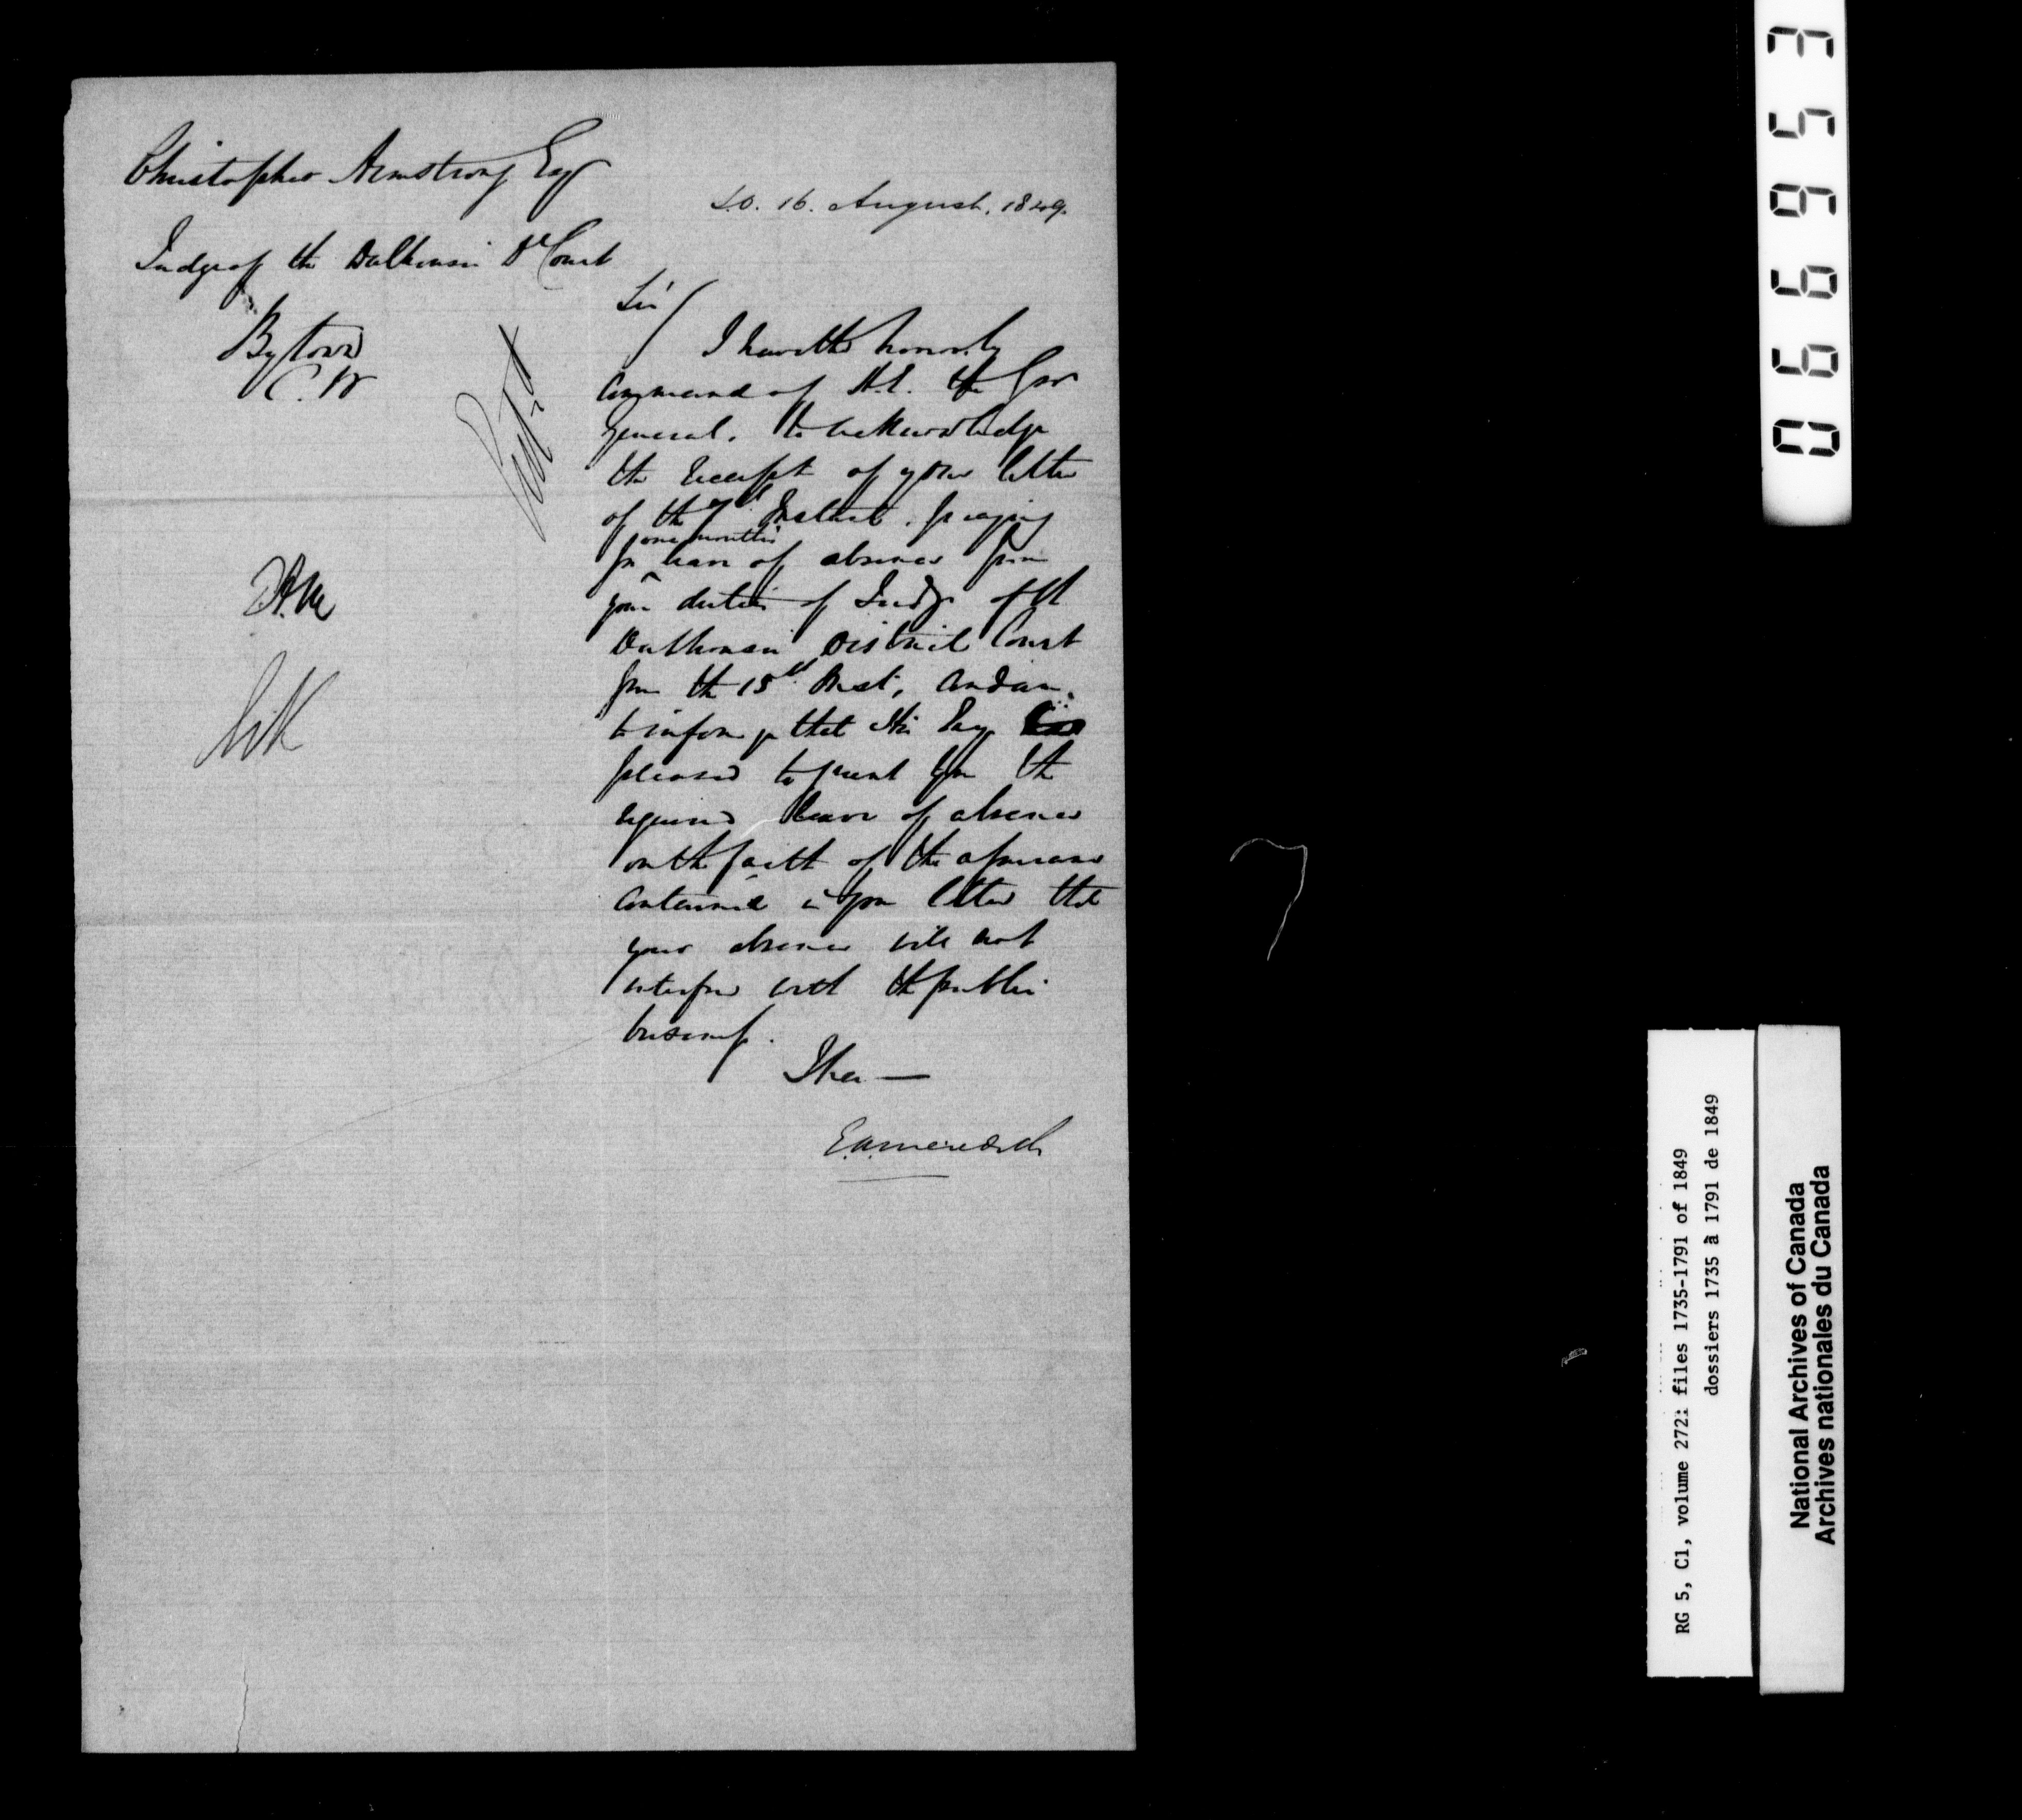 Christopher Armstrong Esqr
S.O. 16. August. 1849.
Judge of the Dalhousie Dt Court
Bytown
C. W
Sir/
I have the honor by
Command of H.E. the Gov
General. to acknowledge
the receipt of your letter
of the Instant. praying
one months
for leave of absence from
your duties of Judge of the
Dalhousie District Court
from the 15th Inst, and am
to inform you that His Exy
pleased to grant you the
required leave of absence
on the faith of the assurance
contained in your letter that
your absence will not
interfere with the public
business.
I have —
E.A. Meredith
066953
RG 5, C1, volume 272: files 1735-1791 of 1849
dossiers 1735 à 1791 de 1849
National Archives of Canada
Archives nationales du Canada